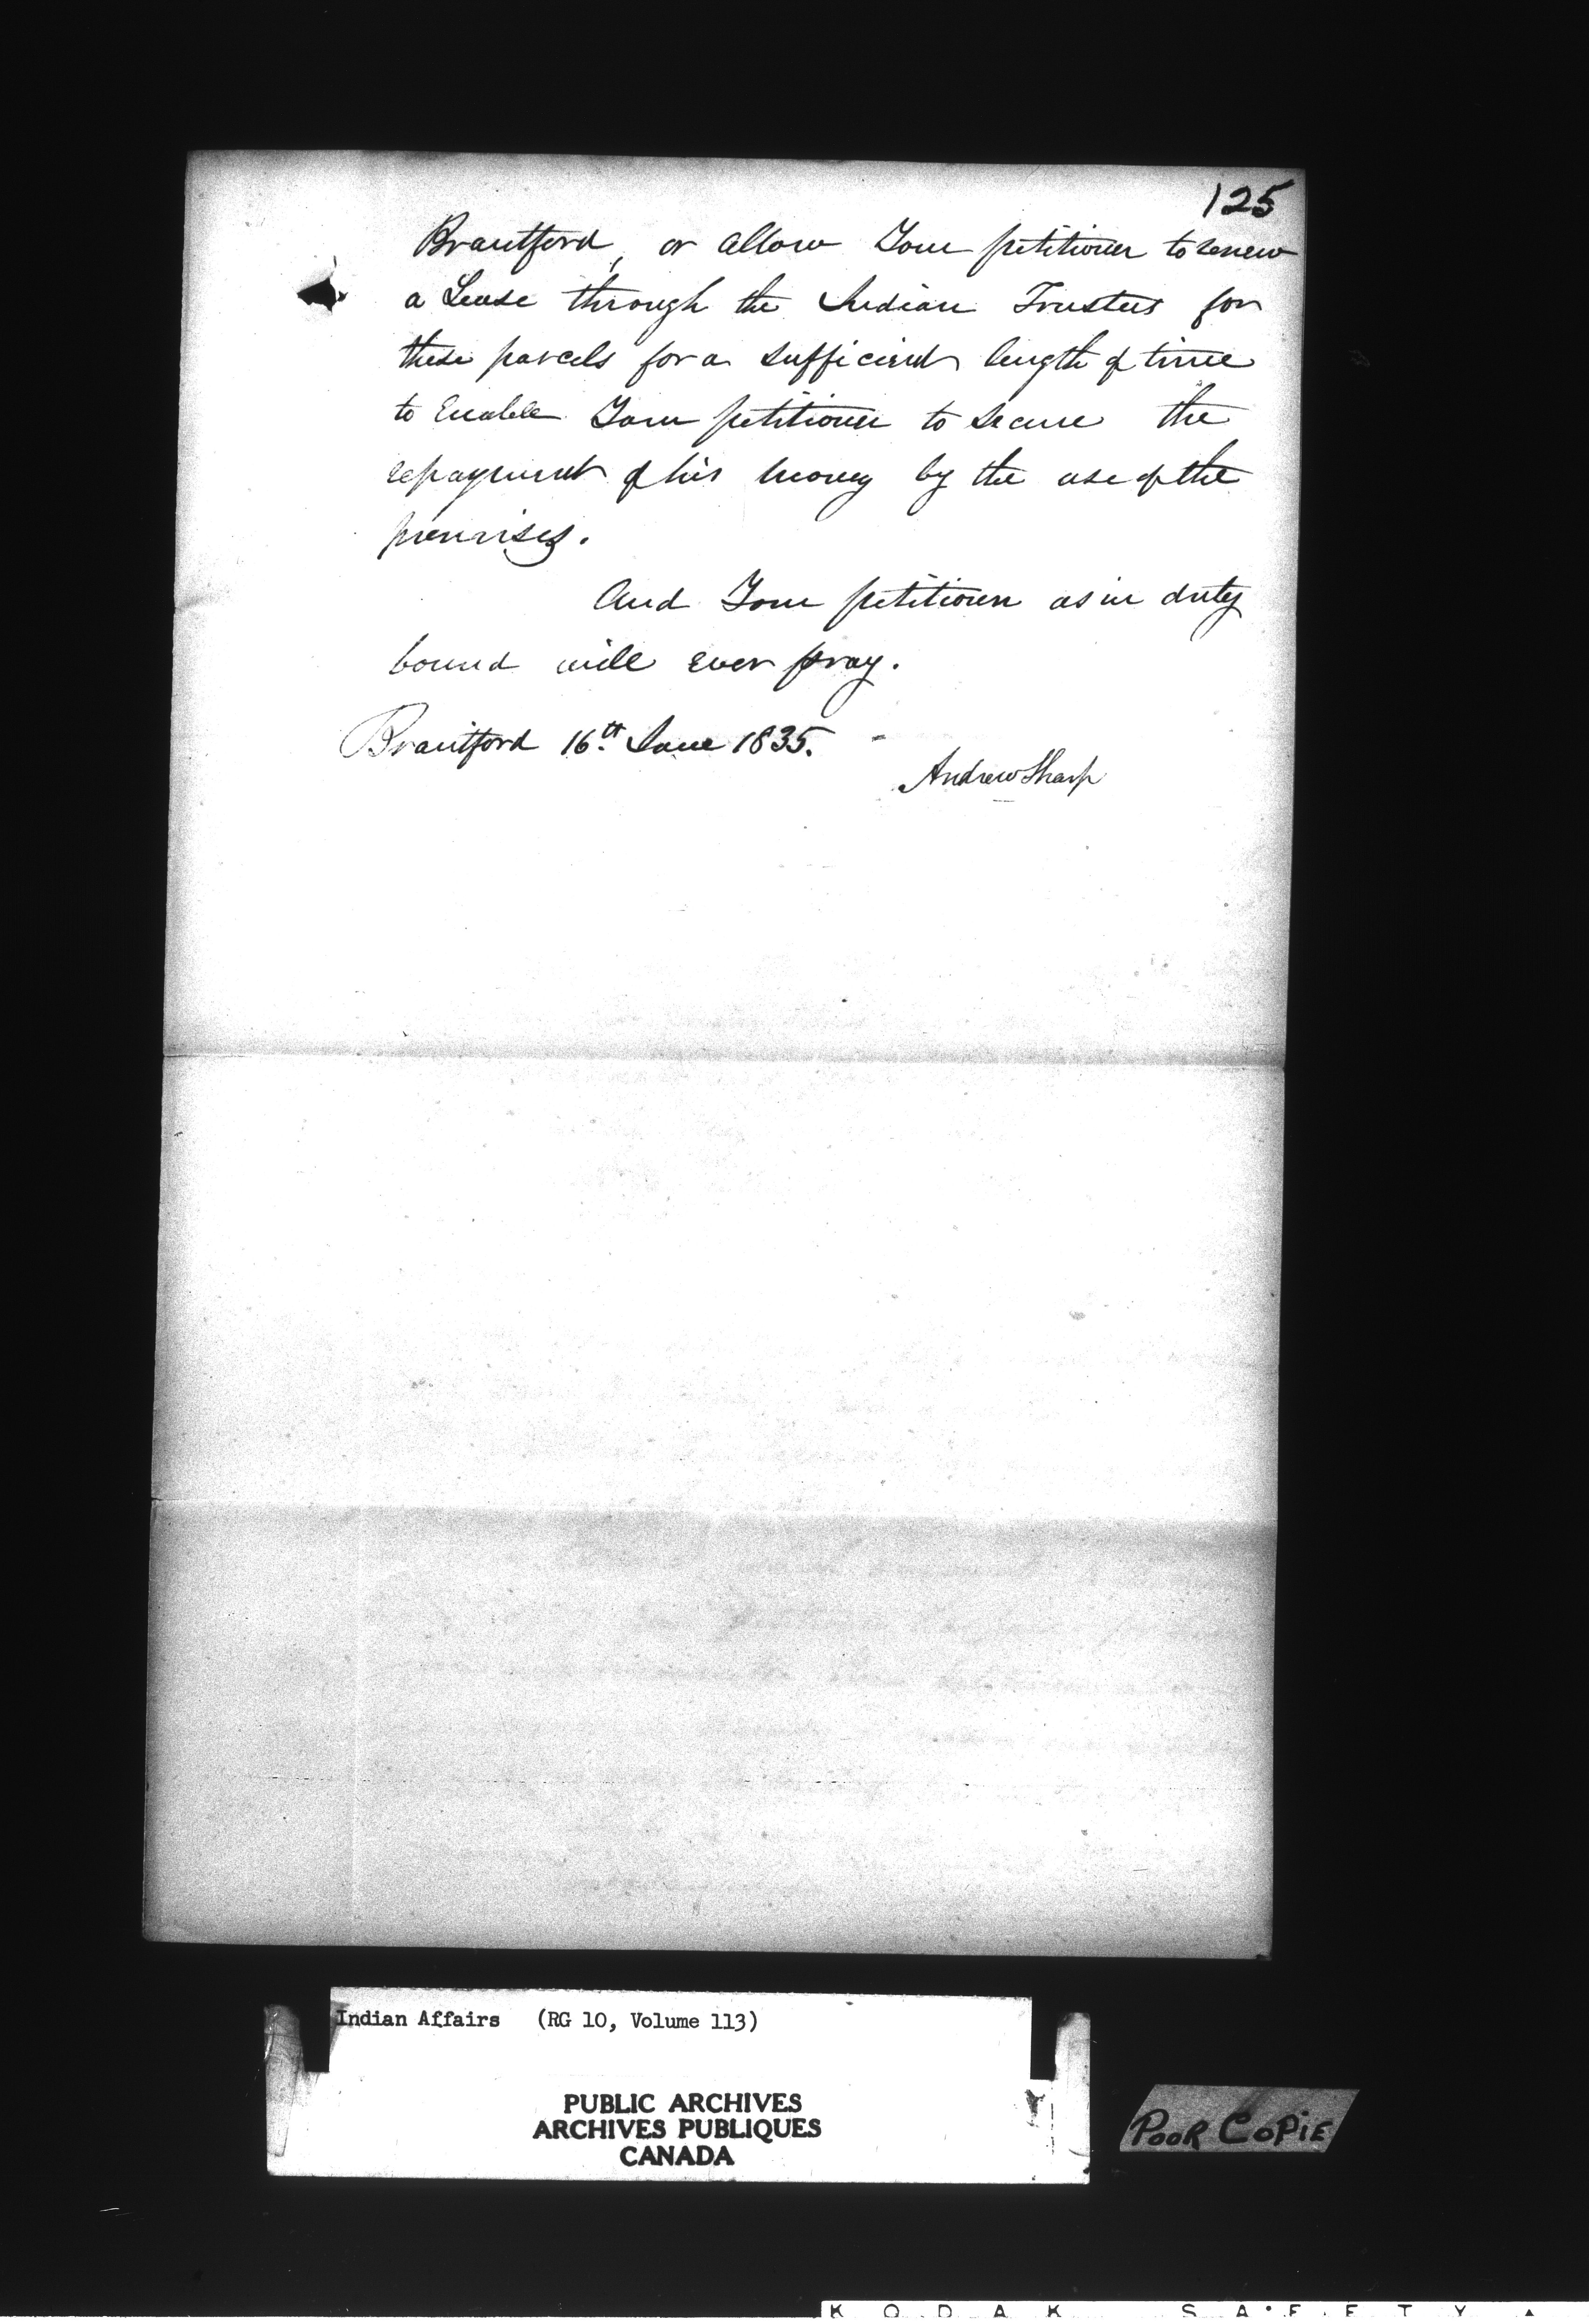 125
Brantford, or allow Your petitioner to renew
a Lease through the Indian Trustees for
these parcels for a sufficient length of time
to Enable Your petitioner to secure the
repayment of his money by the use of the
premises.
And Your petitioner as in duty
bound will ever pray.
Brantford 16th June 1835.
Andrew Sharp
Indian Affairs (RG 10, Volume 113)
PUBLIC ARCHIVES
ARCHIVES PUBLIQUES
CANADA
POOR COPIE
KODAK SAFETY